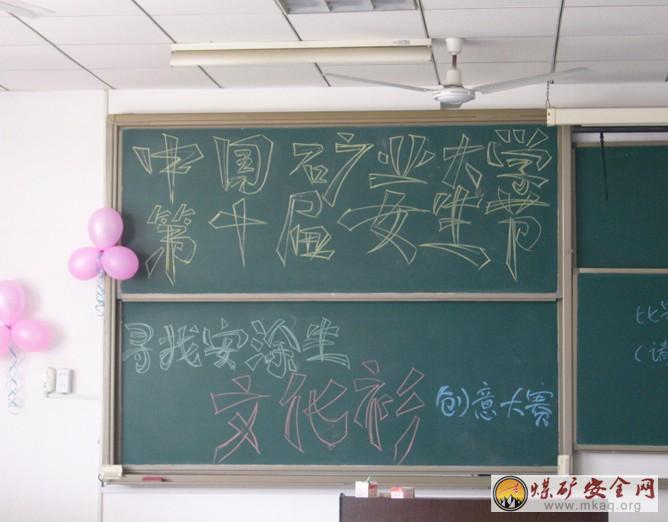 中国矿业大学
第十届女生节
寻找安涂生
文化衫
创意大赛
比
(请
煤矿安全网
www.mkaq.org